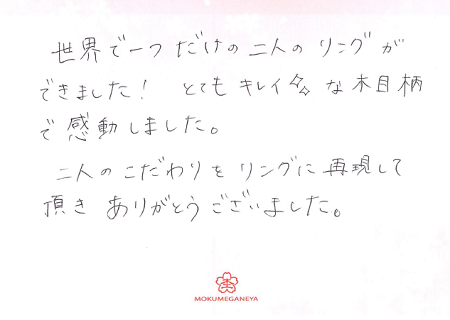 世界で一つだけの二人のリングが
できました! とてもキレイな木目柄
で感動しました。
二人のこだわりをリングに再現して
頂きありがとうございました。
MOKUMEGANEYA